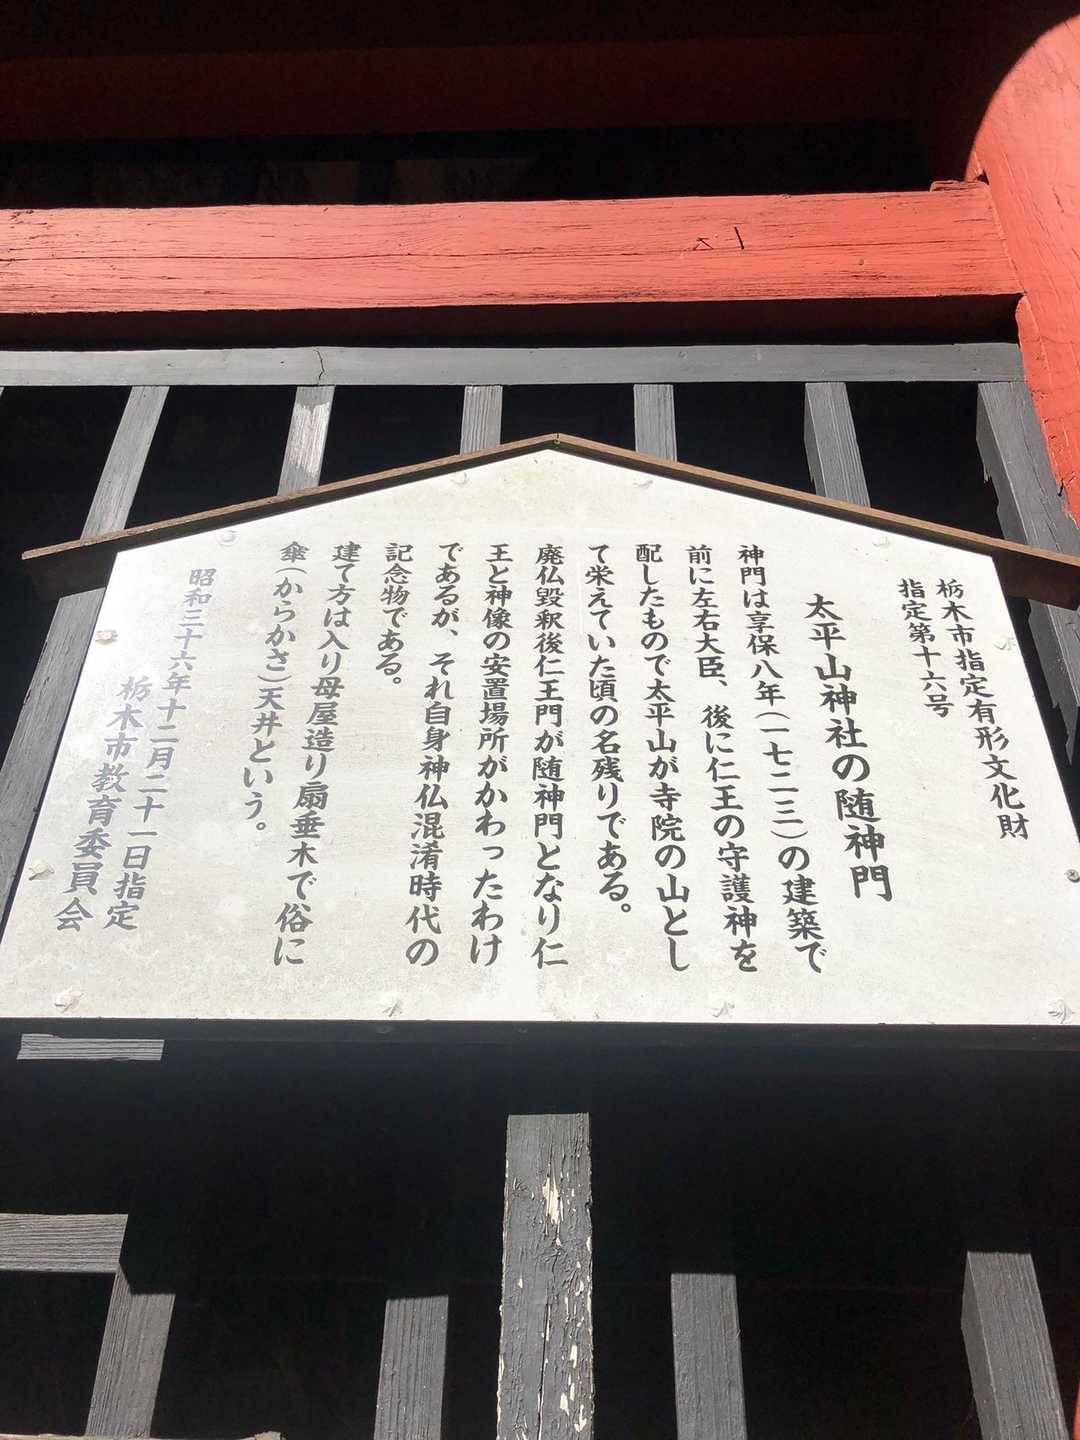 栃木市指定有形文化財
指定第十六号
太平山神社の随神門
神門は享保八年（一七二三）の建築で
前に左右大臣、後に仁王の守護神を
配したもので太平山が寺院の山とし
て栄えていた頃の名残りである。
廃仏毀釈後仁王門が随神門となり仁
王と神像の安置場所がかわったわけ
であるが、それ自身神仏混淆時代の
記念物である。
建て方は入り母屋造り扇垂木で俗に
傘（からかさ）天井という。
昭和三十六年十二月二十一日指定
栃木市教育委員会